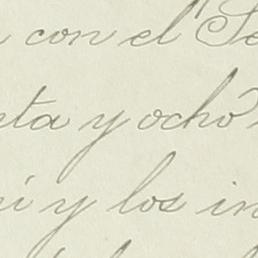 con el Se
ta y ocho
i y los in